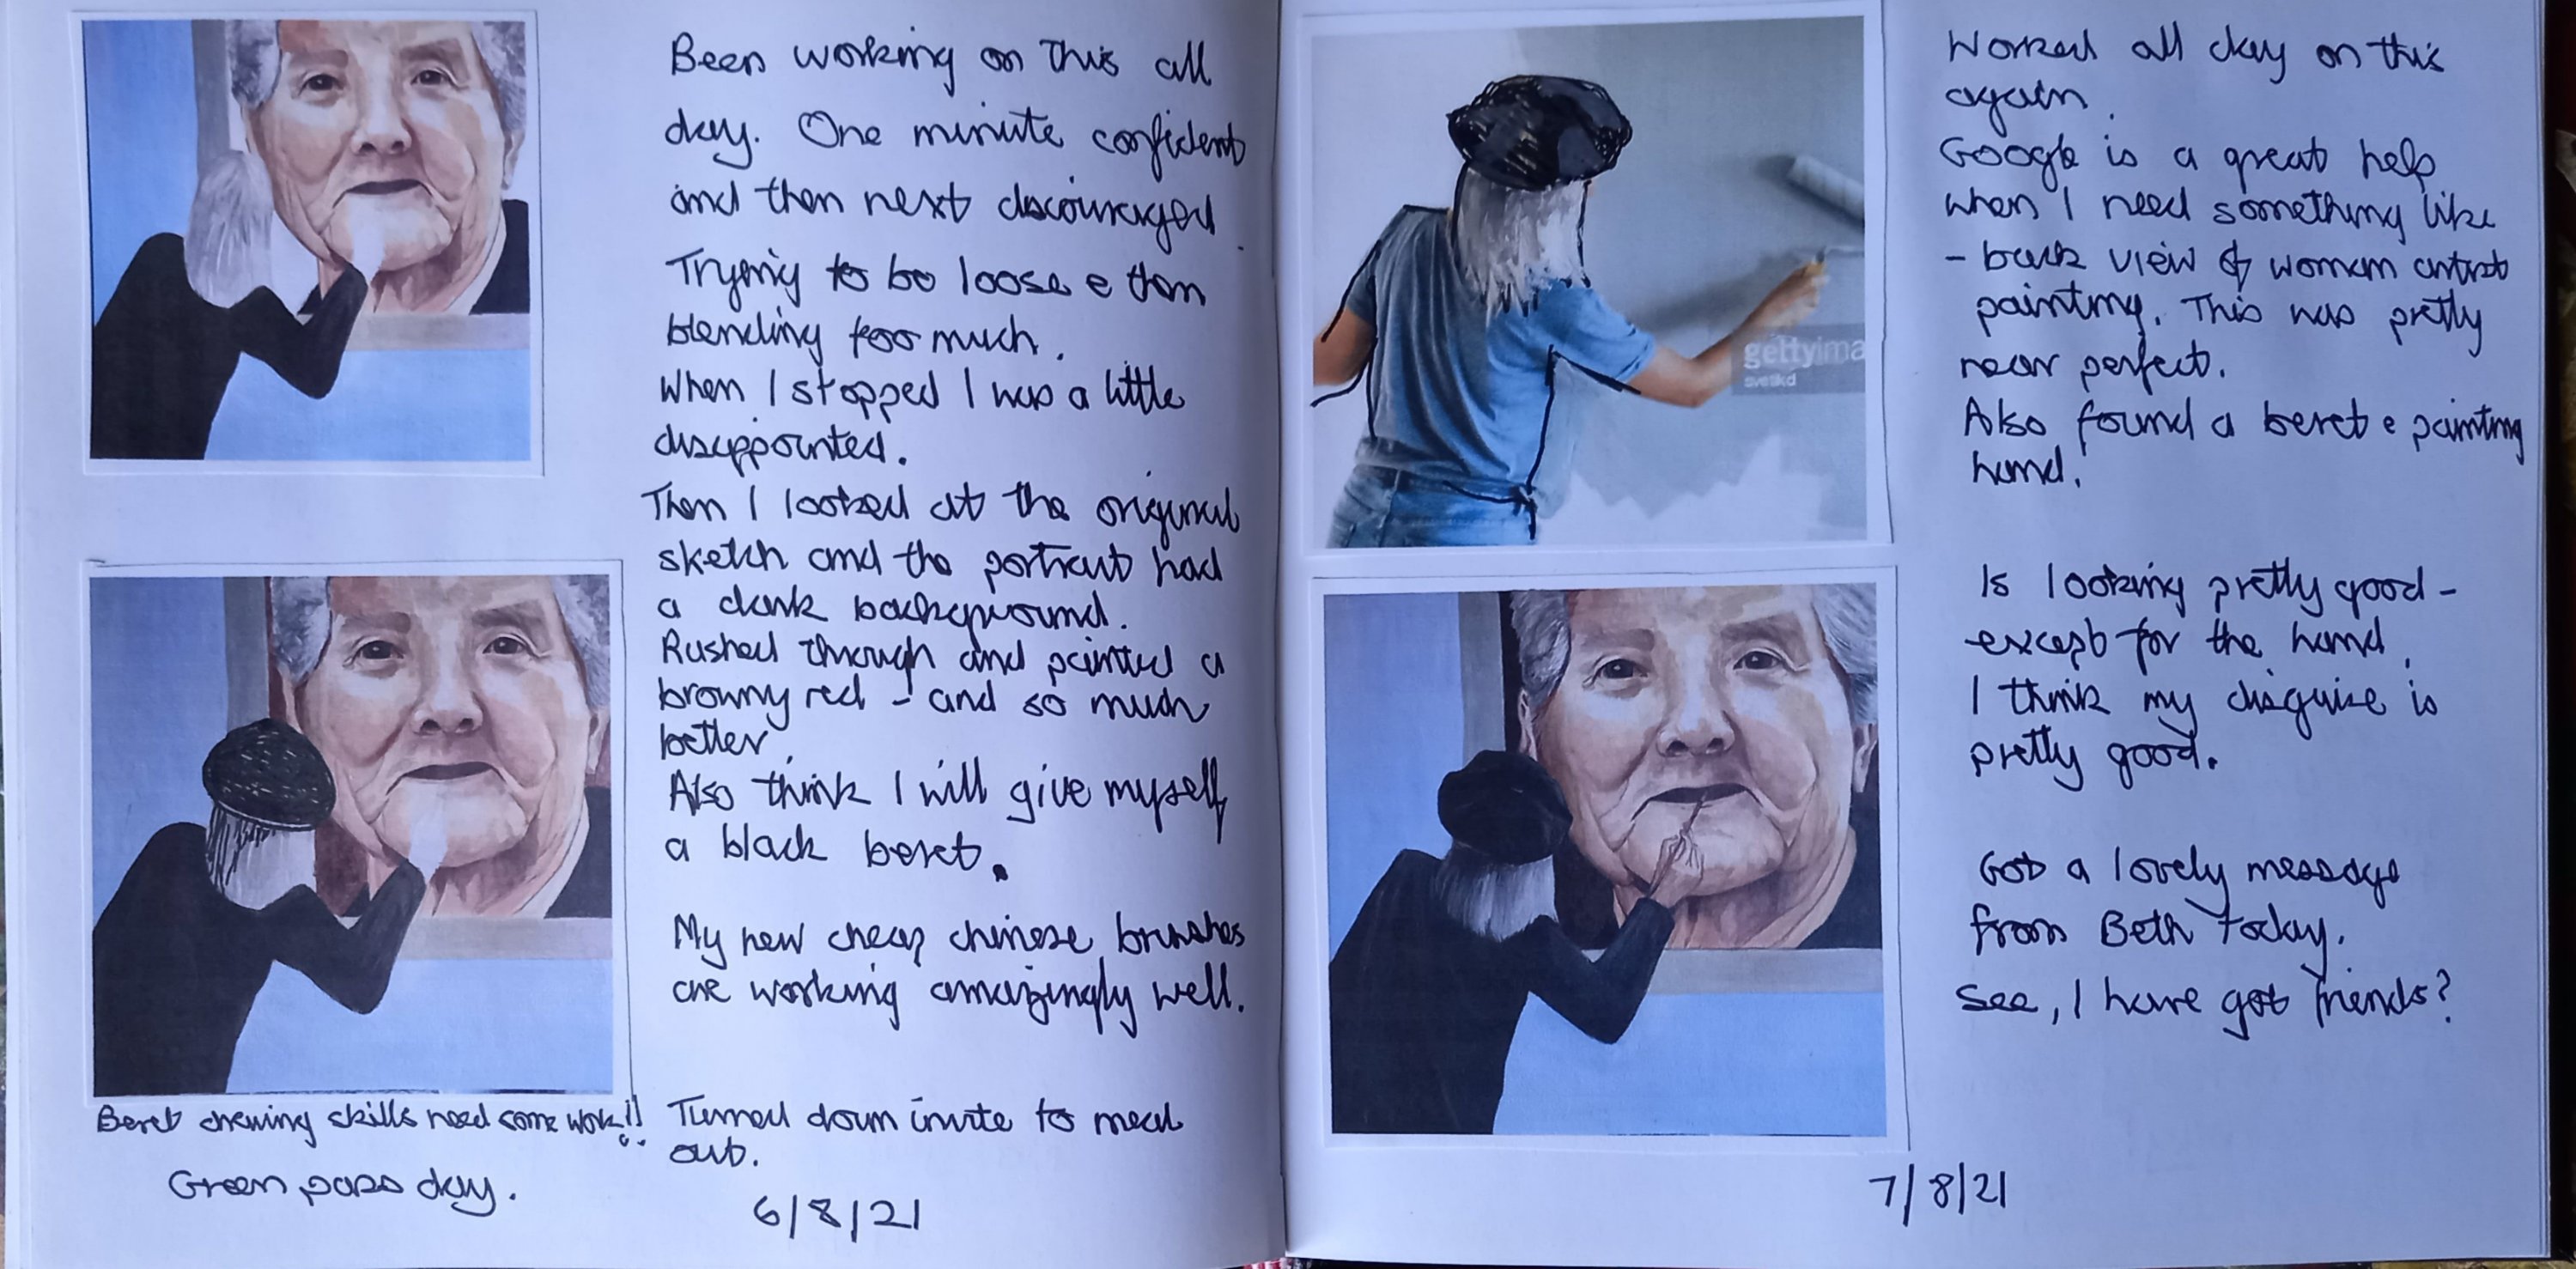 Been working on this all
day. One minute confident
and then next discouraged.
Trying to be loose e then
blending too much.
When I stopped I was a little
disappointed.
Then I looked at the original
sketch and the portrait had
a dark background.
Rushed through and painted a
browny red - and so much
better.
Also think I will give myself
a black beret.
My new cheap chinese brushes
are working amazingly well.
Beret drawing skills need some work!!
Green pass day.
Turned down invite to meal
out.
6/8/21
gettyima
svetikd
Worked all day on this
again.
Google is a great help
when I need something like
- back view of woman artist
painting. This was pretty
near perfect.
Also found a beret e painting
hand.
Is looking pretty good -
except for the hand.
I think my disguise is
pretty good.
Got a lovely message
from Beth today.
See, I have got friends?
7/8/21